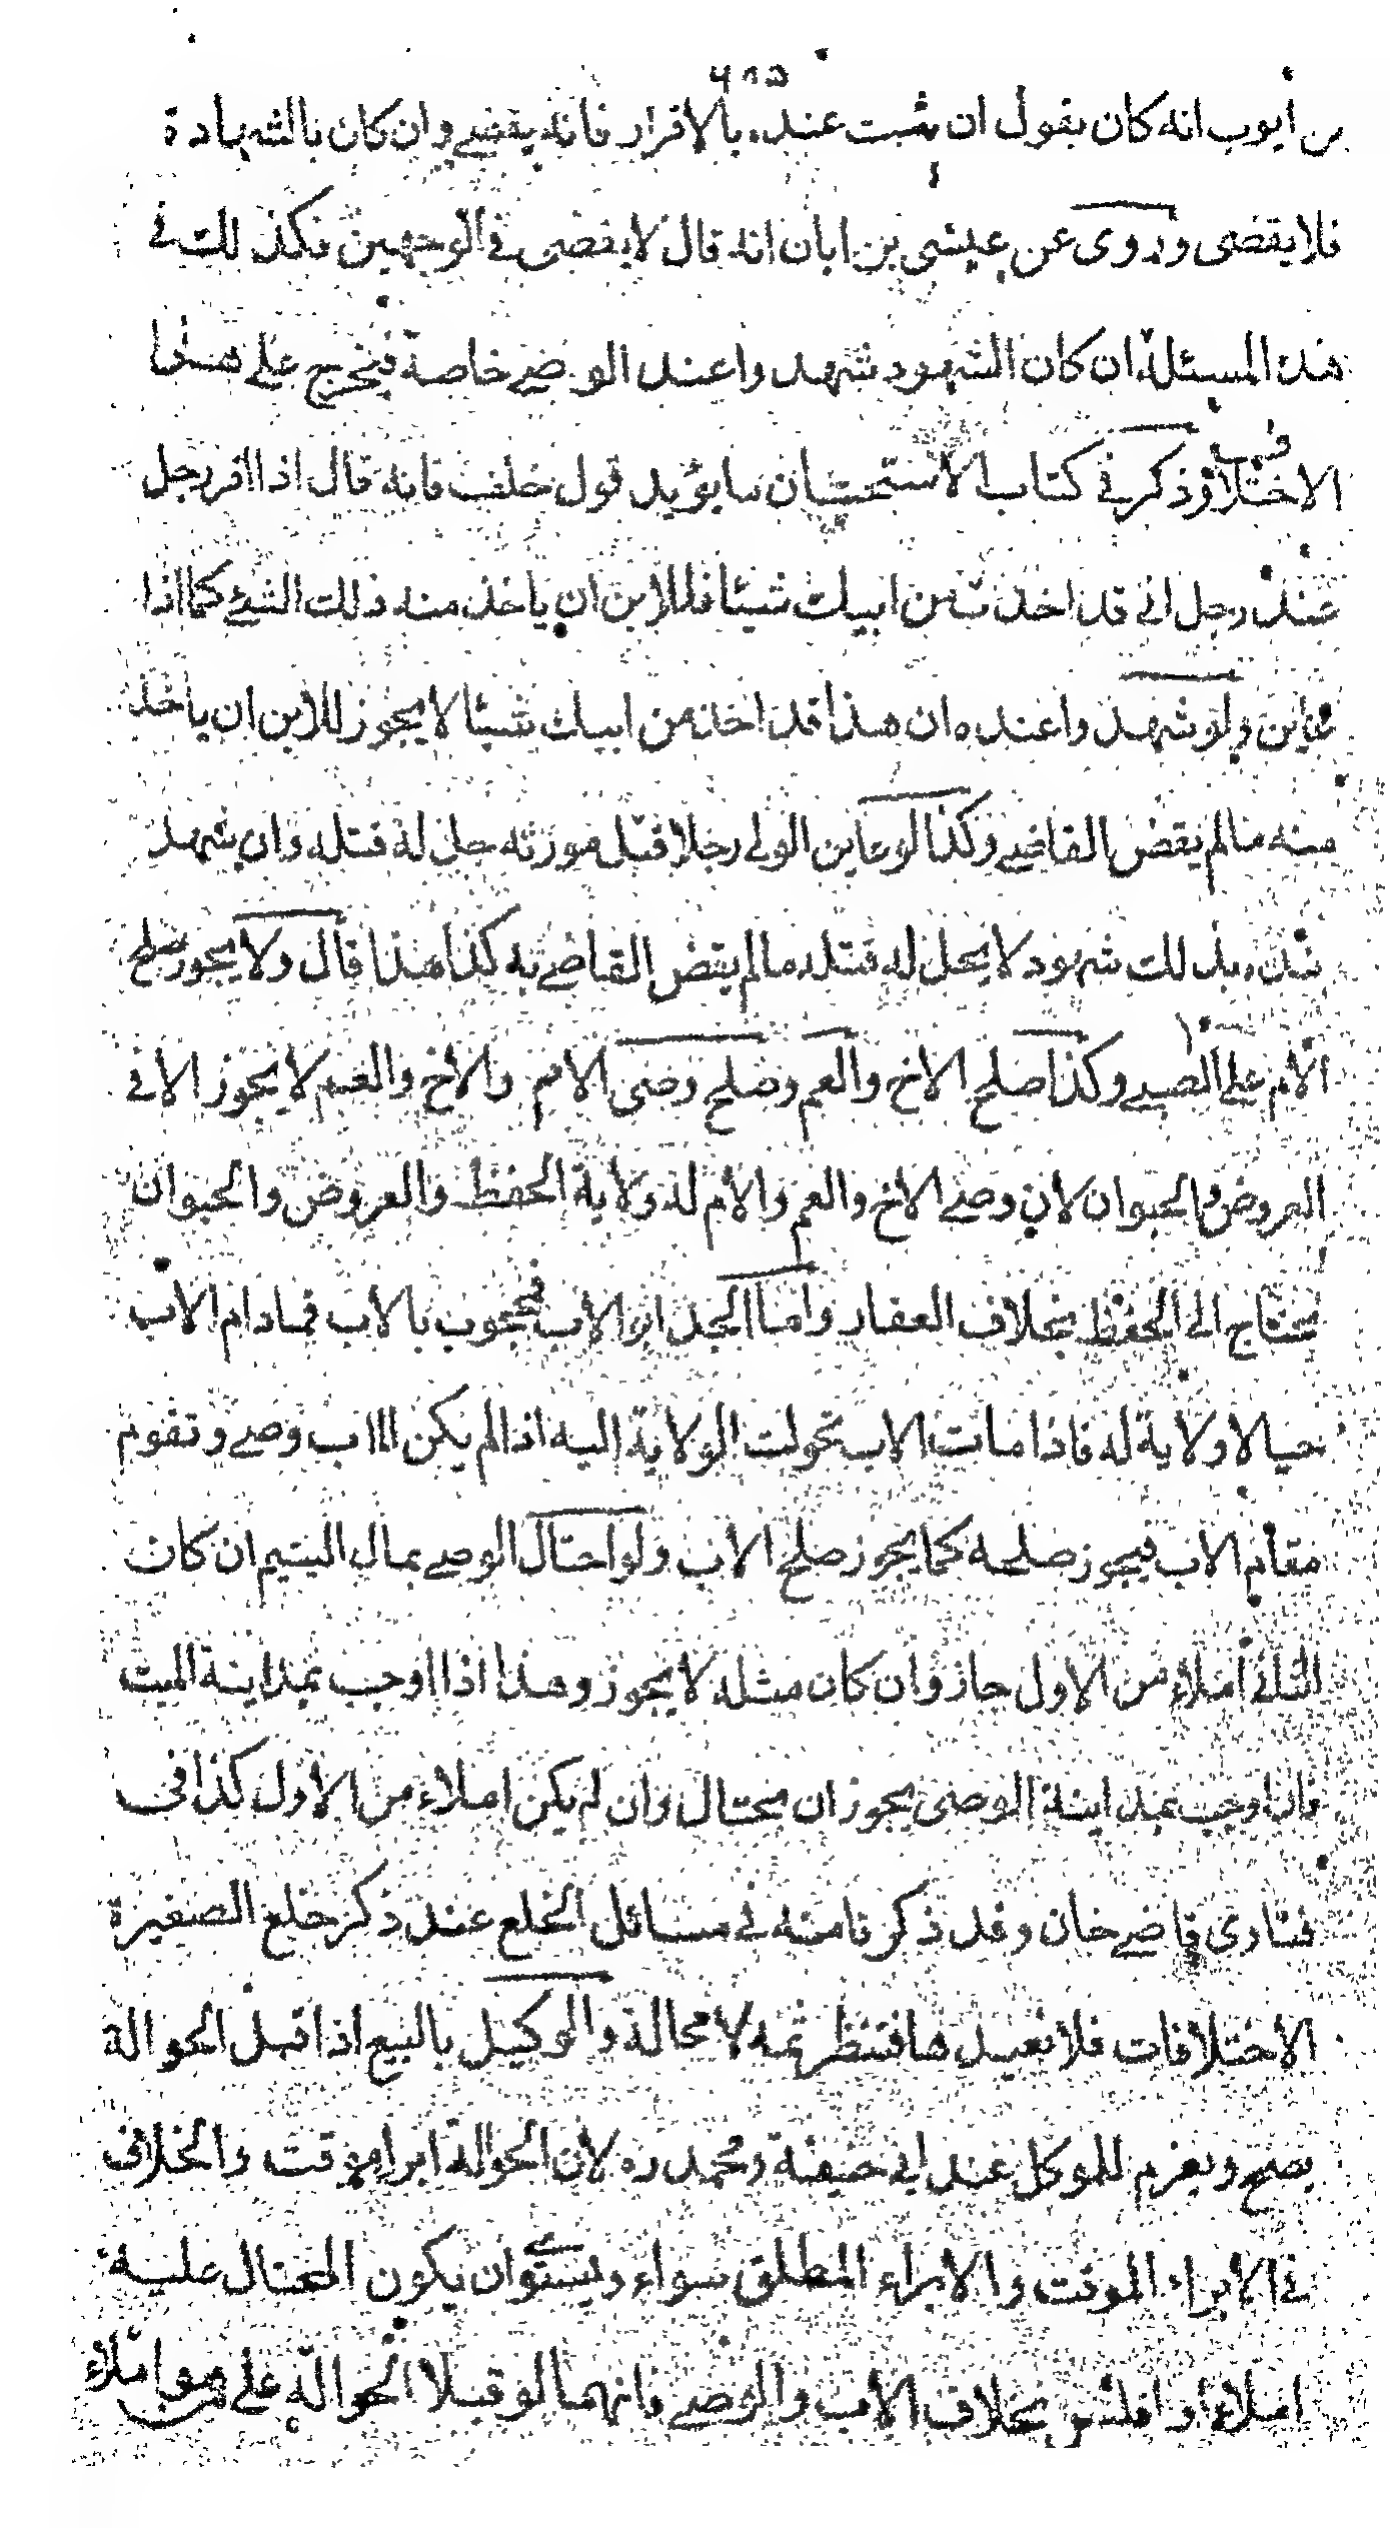 بن ايوب انه كان يقول ان ثبت عنده بالاقرار فانه يقضي وان كان بالشهادة
فلا يقضى وروى عن عيسى بن ابان انه قال لا يقضى في الوجهين فكذلك في
هذه المسئلة ان كان الشهود شهدوا عند الوصي خاصة فيخرج على هذا
الاختلاف وذكر في كتاب الاستحسان ما يؤيد قول خلف فانه قال اذا اقر رجل
عند رجل اني قد اخذت من ابيك شيئا فللابن ان ياخذ منه ذلك الشئ كما اذا
عاين ولو شهدوا عنده ان هذا قد اخذ من ابيك شيئا لا يجوز للابن ان ياخذ
منه ما لم يقض القاضي وكذا لو عاين الولي رجلا قتل مورثه حل له قتله وان شهد
عنده بذلك شهود لا يحل له قتله ما لم يقض القاضي به كذا هذا قال ولا يجوز صلح
الام على الصبي وكذا صلح الاخ والعم وصلح وصى الام والاخ والعم لا يجوز الا في
العروض والحيوان لان وصي الاخ والعم والام له ولاية الحفظ والعروض والحيوان
محتاج الى الحفظ بخلاف العقار واما الجد اب الاب فمحجوب بالاب فمادام الاب
حيا لا ولاية له فاذا مات الاب تحولت الولاية اليه اذا لم يكن للاب وصي وتقوم
مقام الاب فيجوز صلحه كما يجوز صلح الاب ولو احتال الوصي بمال اليتيم ان كان
الثاني املاء من الاول جاز وان كان مثله لا يجوز وهذا اذا اوجب بمداينة الميت
فاذا وجب بمداينة الوصى يجوز ان يحتال وان لم يكن املاء من الاول كذا فى
فتاوى قاضي خان وقد ذكرنا منه في مسائل الخلع عند ذكر خلع الصغيرة
الاختلافات فلا نعيدها فتنظر ثمه لا محالة والوكيل بالبيع اذا قبل الحوالة
يصح ويغرم للموكل عند ابي حنيفة ومحمد ره لان الحوالة ابراء موقت والخلاف
في الابراء الموقت والابراء المطلق سواء ويستوى ان يكون المحتال عليه
املاء او افلس بخلاف الاب والوصي فانهما لو قبلا الحوالة على من هو املاء